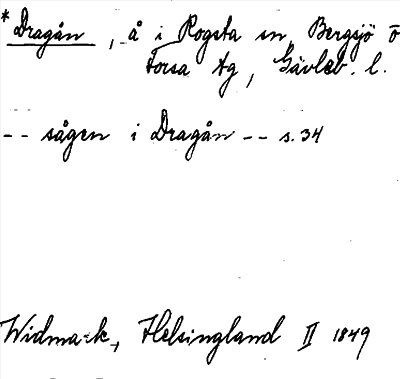 *Dragån, å i Rogsta sn, Bergsjö o
Forsa tg, Gävleb. l.
-- sågen i Dragån -- s. 34
Widmark, Helsingland II 1849